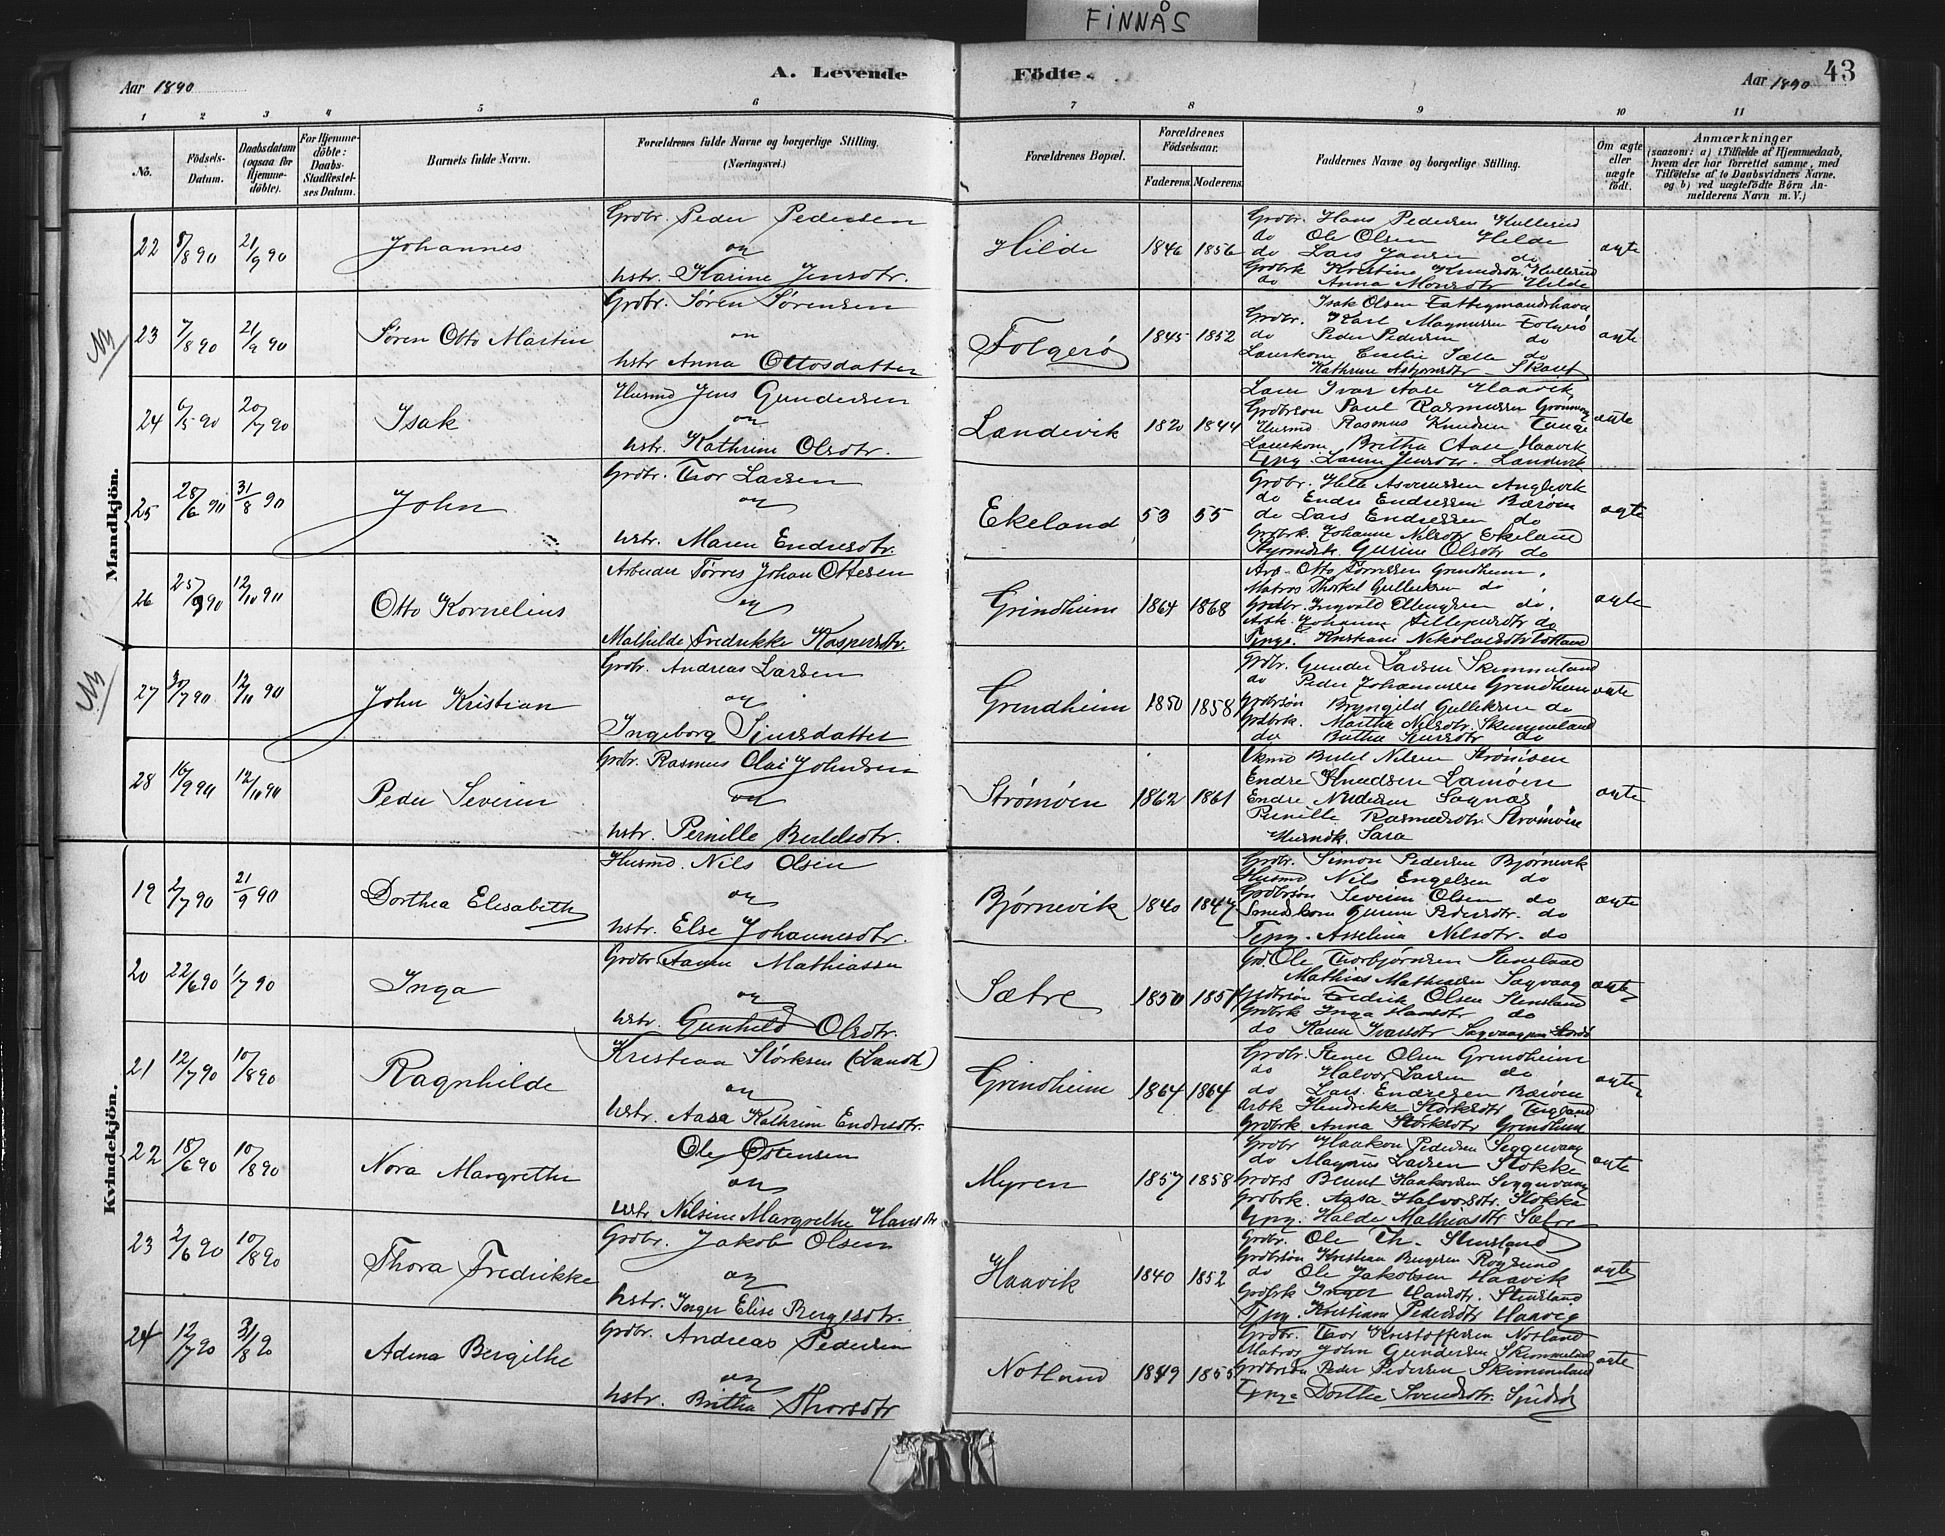 FINNÅS
Aar 1890
A. Levende
Födte.
Aar 1890
43
1 2 3 4 5 6 7 8 9 10 11
No.
Födsels-Datum.
Daabsdatum (ogsaa for Hjemme-döbte).
For Hjemme-döbte: Daabs-Stadfæstelses Datum.
Barnets fulde Navn.
Forældrenes fulde Navne og borgerlige Stilling. (Næringsvei.)
Forældrenes Bopæl.
Forældrenes Födselsaar.
Faderens. Moderens.
Faddernes Navne og borgerlige Stilling.
Om ægte eller uægte födt.
Anmærkninger
(saasom: a) i Tilfælde af Hjemmedaab, hvem der har forrettet samme, med Tilföielse af to Daabsvidners Navne. og b) ved uægtefödte Börn An-melderens Navn m. V.)
Mandkjön.
22 8/8 90 21/9 90 Johannes
Grdbr. Peder Pedersen
og
hstr. Karine Jensdtr.
Hilde 1846 1856
Grdbr. Hans Pedersen Kulleseid
do Ole Olsen Hilde
do Lars Jansen do
Grdbrk Kristine Knudsdtr Kulleseid
do Anna Monsdtr Hilde
ægte
23 7/8 90 21/9 90 Søren Otto Martin
Grdbr. Søren Sørensen
og
hstr Anna Ottosdatter
Folgerø 1845 1852
Isak Olsen Fattigmandshavn
Grdbr. Karl Magnussen Folgerø
do Peder Pedersen do
Lærerkone Emilie Sætte do
Kathrine Asbjørnsdtr
ægte
24 6/5 90 20/7 90 Isak
Husmd Jens Gundersen
og
hstr. Kathrine Olsdtr.
Landevik 1820 1844
Lærer Ivar Aase Haavik
Grdbrsøn Paul Rasmussen
Husmd Rasmus Knudsen
Lærerkone Britha Aase Haavik
Tjpg. Laurine Jensdtr. Landevik
ægte
25 28/6 90 31/8 90 John
Grdbr. Thor Larsen
og
hstr. Maren Endresdtr.
Ekeland 53 55
do Endre Endresen Bærøen
do Lars Endresen do
Grdbrk. Johanne Nilsdtr Ekeland
Gurine Olsdtr do
ægte
26 25/9 90 12/10 90 Otto Kornelius
Arbeider Torres Johan Ottesen
og
Mathilde Fredrikke Kaspersdtr.
Grindheim 1864 1868
Arb. Otto Torresen Grindheim.
Matros Thorkel Gulleksen do
Grdbr. Ingvald Ellingsen do.
ægte
27 30/7 90 12/10 90 John Kristian
Grdbr. Andreas Larsen
og
Ingeborg Sjursdatter
Grindheim 1850 1858
Grdbr. Gunder Larsen Skimmeland
do Peder Johannesen Grindheim
Grdbrsøn Bryngild Gulleksen do
Grdbrk. Martha Nilsdtr. Skimmeland
do Britha
ægte
28 16/9 90 12/10 90 Peder Severin
Grdbr. Rasmus Olai Johnsen
og
hstr. Pernille Bertelsdtr.
Strømøen 1862 1861
Bertel Nilsen Strømøen
Endre Knudsen
Endre
Pernille Rasmusdtr. Strømøen
Husmdk. Sara
ægte
Kvindekjön.
19 2/7 90 21/9 90 Dorthea Elisabeth
Husmd. Nils Olsen
og
hstr. Else Johannesdtr.
Bjørnevik 1840 1847
Grdbr. Simon Pedersen Bjørnevik
Husmd Nils Engelsen do
Grdbrsøn Severin Olsen do
Smedskone Gurine Pedersdtr. do
Tjpg. Asselina Nilsdtr. do
ægte
20 22/6 90 1/7 90 Inga
Grdbr. Aamu Mathiassen
og
hstr. Gunhild Olsdtr.
Sætre 1850 1851
Grd. Ole Thorbjørnsen Stensland
Mathias Mathiassen Sagvaag
Grdbrsøn Fredrik Olsen Stensland
Grdbrk Inga Hansdtr do
do Karen Ivarsdtr Sagvaagen Stordø
ægte
21 12/7 90 10/8 90 Ragnhilde
Kristian Størksen
og
hstr. Aasa Kathrine Endresdtr.
Grindheim 1864 1864
Grdbr. Stener Olsen Grindheim
do Halvor Larsen do
do Lars Endresen Bærøen
Arbk Hendrikke Størksdtr
Grdbrk Anna Størksdtr Grindheim
ægte
22 18/6 90 10/8 90 Nora Margrethe
Ole Østensen
og
hstr. Nilsine Margrethe Hansdtr
Myren 1857 1858
Grdbr Haakon Pedersen Siggevaag
do Magnus Larsen Stokke
Grdbrs Bernt Haakonsen Siggevaag
Grdbrk. Aasa Halvorsdtr. Stokke
Tjpg. Halde Mathiasdtr Sætre
ægte
23 2/6 90 10/8 90 Thora Fredrikke
Grdbr. Jakob Olsen
og
hstr. Inger Elise Bergesdtr.
Haavik 1840 1852
Grdbr. Ole Th. Stensland
Grdbrsøn Kristian Bergesen
do Ole Jakobsen Haavik
Grdbrk Inger Hansdtr. Stensland
Tjpg. Kristiane Pedersdtr Haavig
ægte
24 12/7 90 31/8 90 Adina Bergithe
Grdbr. Andreas Pedersen
og
hstr. Britha Thorsdtr
Notland 1849 1855
Grdbr. Thor Kristoffersen Notland
Matros John Gundersen Skimmeland
Grdbrsøn Peder Pedersen Skimmeland
Tjpge Dorthea Svendsdtr.
ægte